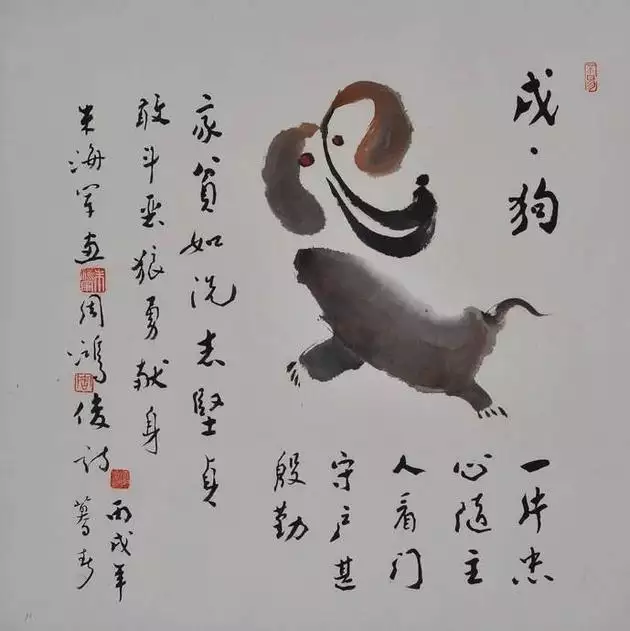 戌·狗
一片忠
心随主
人看门
守户甚
殷勤
家貧如洗志堅贞
敢斗恶狼勇献身
朱海军画周鸿俊诗
丙戌年
暮春